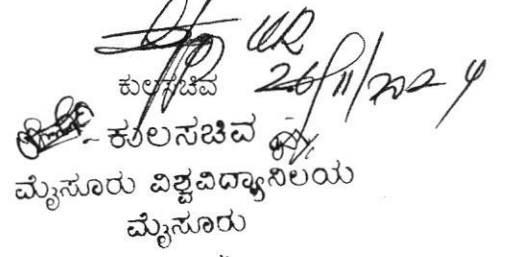 26/11/2024
ಕುಲಸಚಿವ
ಕುಲಸಚಿವ
ಮೈಸೂರು ವಿಶ್ವವಿದ್ಯಾನಿಲಯ
ಮೈಸೂರು